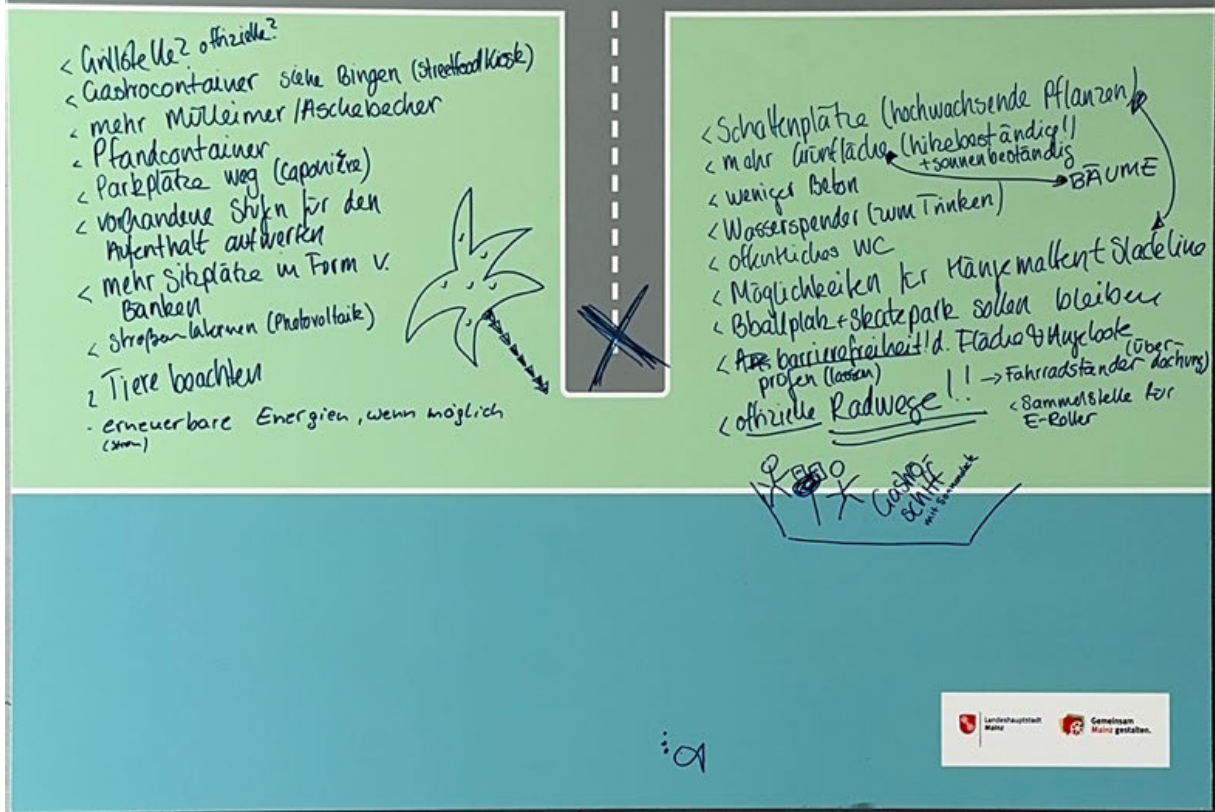 < Grillstelle? offizielle?
< Gastrocontainer siehe Bingen (Streetfood Kiosk)
< mehr Mülleimer/Aschebecher
< Pfandcontainer
< Parkplätze weg (Caponière)
< vorhandene Stufen für den
Aufenthalt aufwerten
< mehr Sitzplätze in Form v.
Bänken
< Straßenlaternen (Photovoltaik)
Tiere beachten
- erneuerbare Energien, wenn möglich
(Strom)
< Schattenplätze (hochwachsende Pflanzen)
< mehr Grünfläche (hitzebeständig!)
+ sonnenbeständig
BÄUME
< weniger Beton
< Wasserspender (zum Trinken)
< öffentliches WC
< Möglichkeiten für Hängematten + Slackline
< Bballplatz + Skatepark sollen bleiben
< barrierefreiheit! d. Fläche & Angebote
prüfen (lassen)
(Über-
dachung)
< offizielle Radwege!! → Fahrradständer
< Sammelstelle für
E-Roller
Gastro-
schiff
mit Sonnendeck
Landeshauptstadt
Mainz
Gemeinsam
Mainz gestalten.